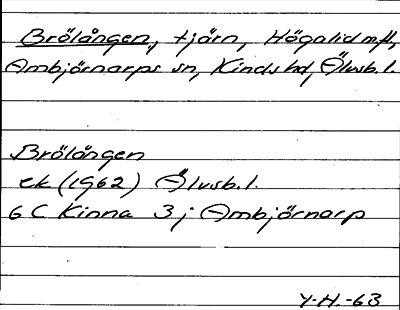 Brölången, tjärn, Högalid m fl,
Ambjörnarps sn, Kinds hd, Älvsb. l.
Brölången
ek (1962) Älvsb. l.
6 C Kinna 3 j Ambjörnarp
Y.H. -63